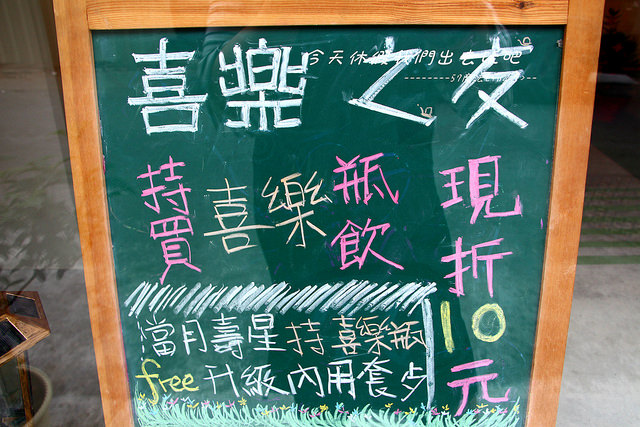 喜樂之友
今天休假我們出去玩吧
持買喜樂瓶飲
現折10元
當月壽星持喜樂瓶
free升級內用套歺